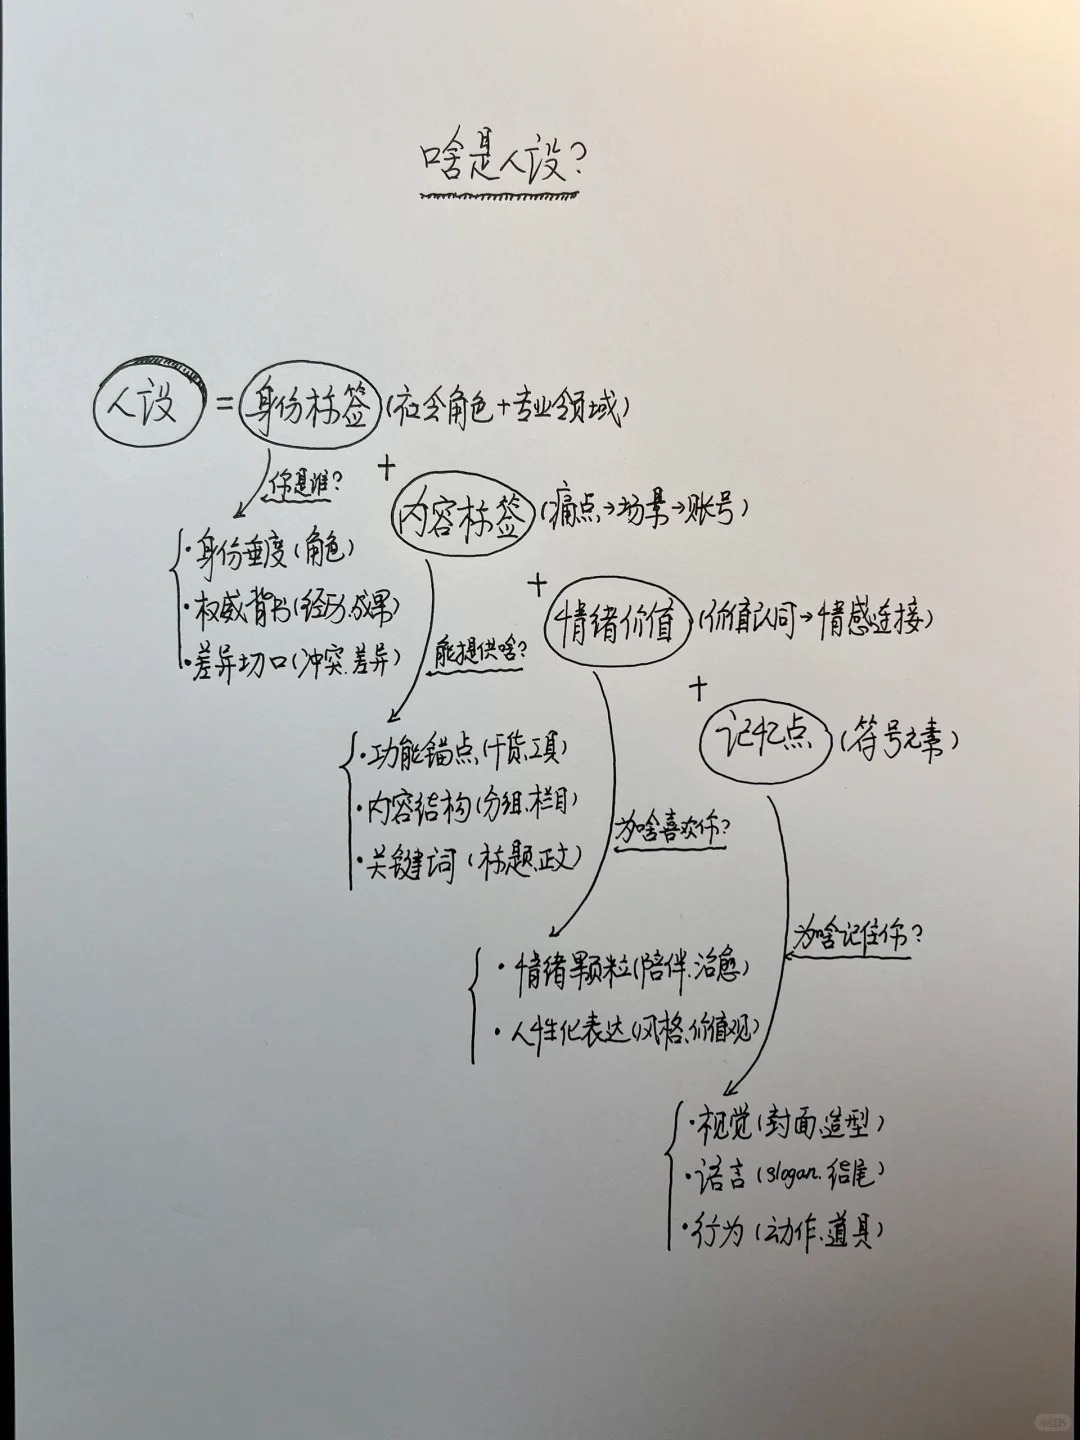 啥是人设?
人设 = 身份标签 (社会角色 + 专业领域)
你是谁?
+
内容标签 (痛点→场景→账号)
· 身份垂度 (角色)
· 权威背书 (经历、成果)
· 差异切口 (冲突、差异)
+
情绪价值 (价值认同→情感连接)
能提供啥?
+
记忆点 (符号元素)
· 功能锚点 (干货、工具)
· 内容结构 (分组、栏目)
· 关键词 (标题、正文)
为啥喜欢你?
为啥记住你?
· 情绪颗粒 (陪伴、治愈)
· 人性化表达 (风格、价值观)
· 视觉 (封面、造型)
· 语言 (slogan、结尾)
· 行为 (动作、道具)
小红书